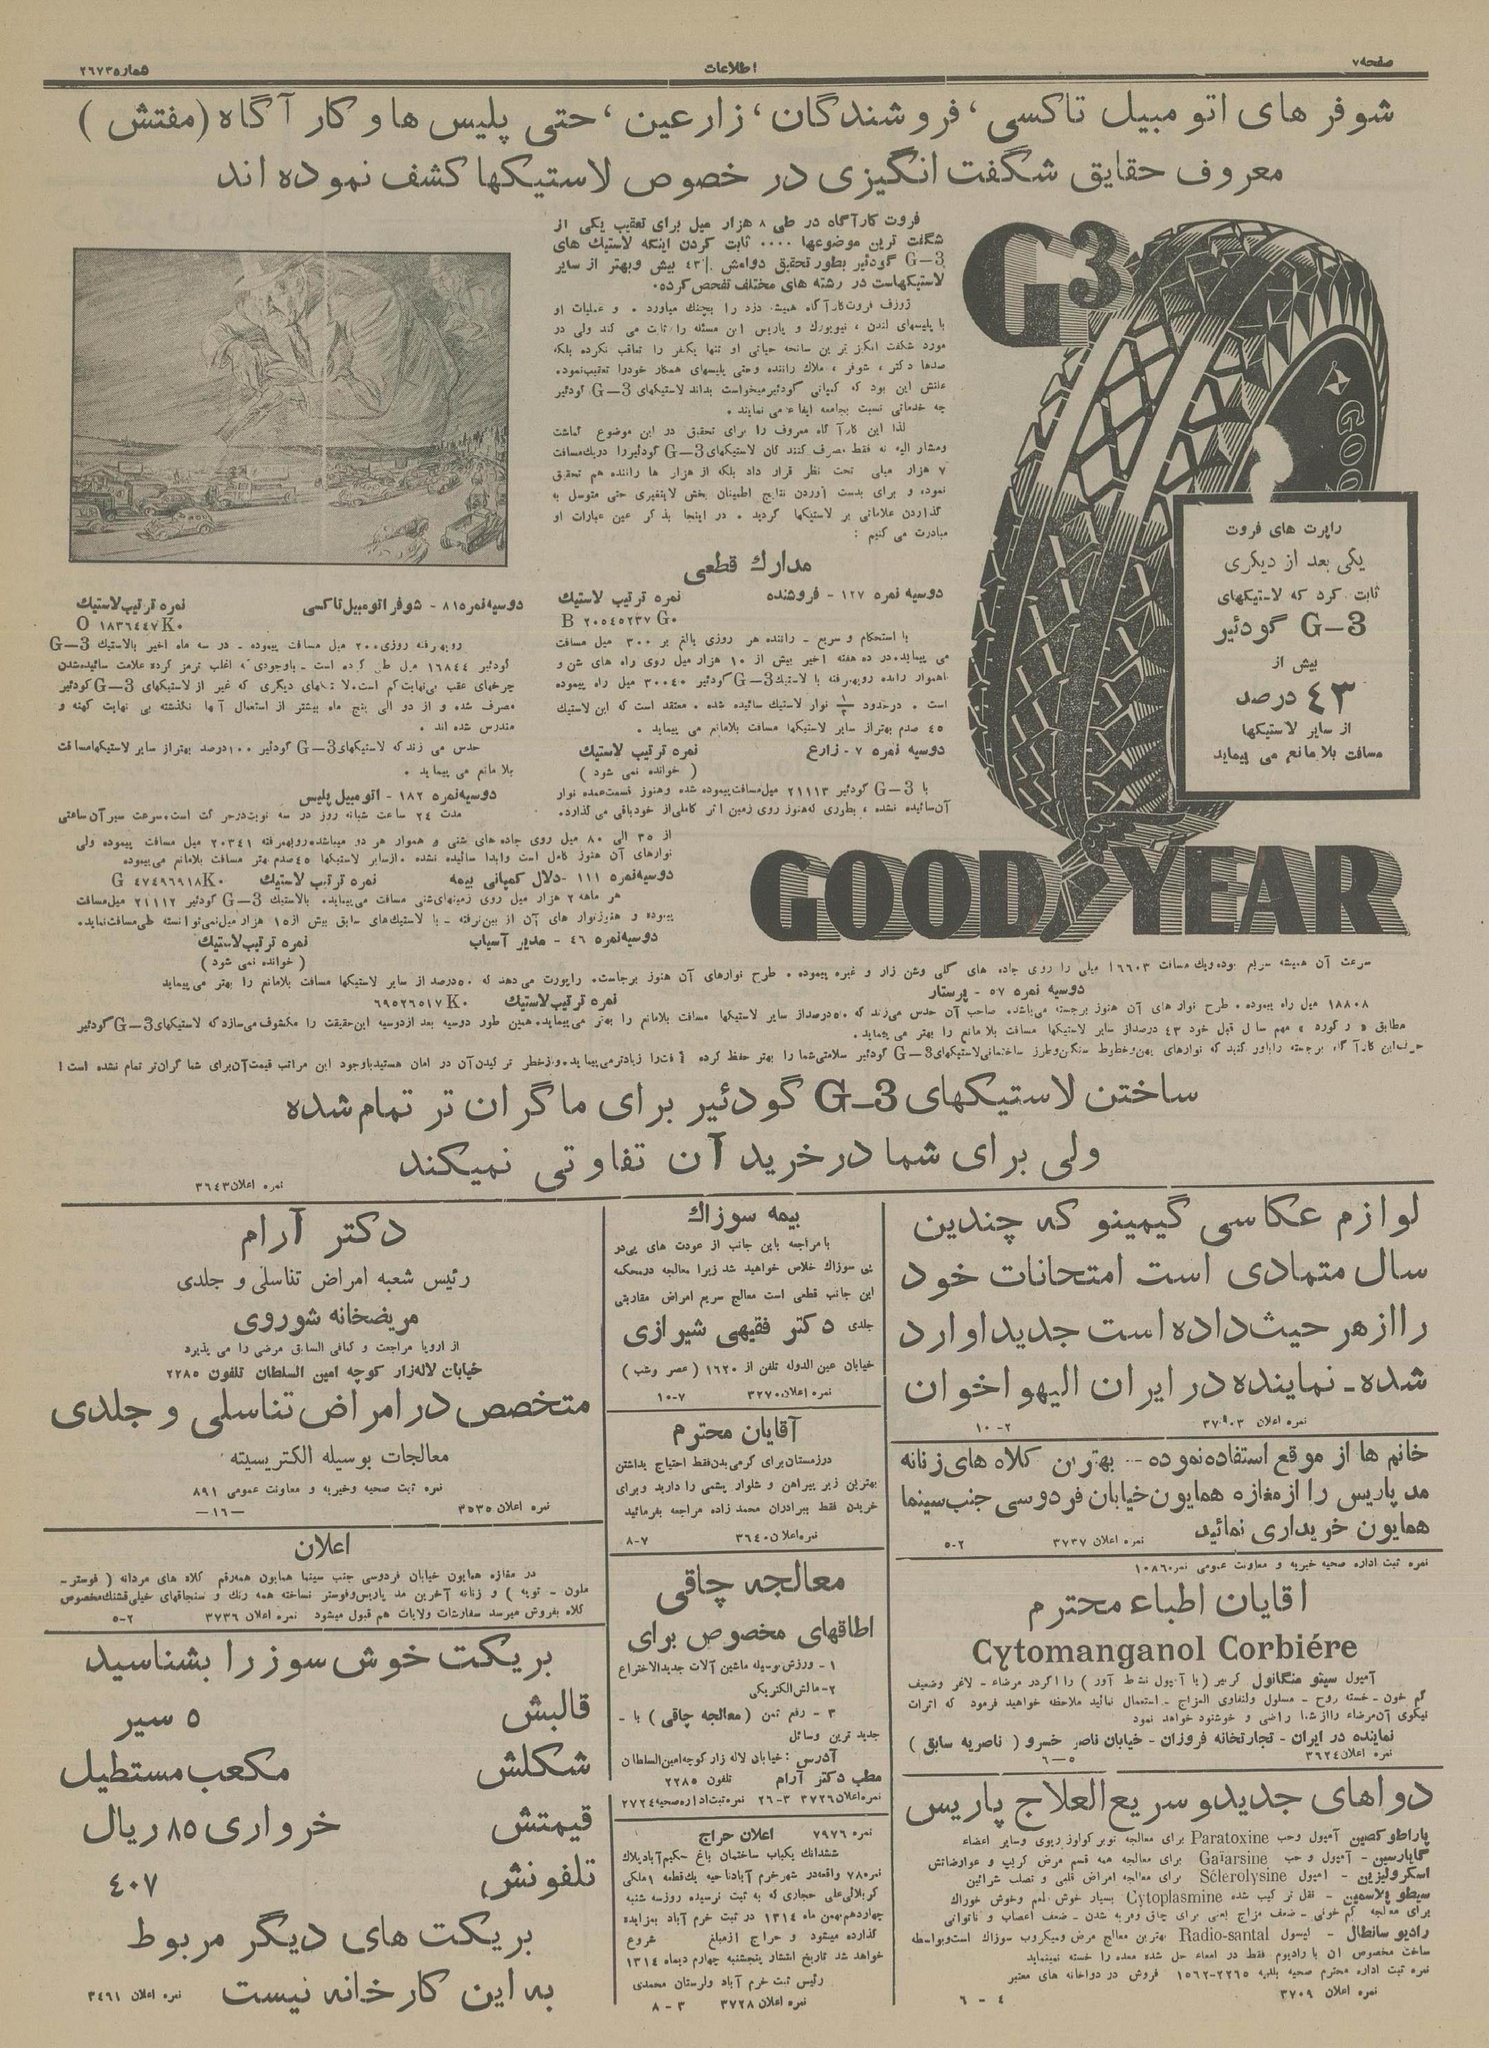 صفحه ۷
اطلاعات
شماره ۲۶۷۳
شوفر های اتومبیل تاکسی ، فروشندگان ، زارعین ، حتی پلیس ها و کار آگاه (مفتش)
معروف حقایق شگفت انگیزی در خصوص لاستیکها کشف نموده اند
فروت کارآگاه در طی ۸ هزار میل برای تعقیب یکی از
شگفت ترین موضوعها .... ثابت کردن اینکه لاستیك های
G-3 گودئیر بطور تحقیق دوامش ٪۴۳ بیش وبهتر از سایر
لاستیکهاست در رشته های مختلف تفحص کرده.
ژوزف فروت کارآگاه همیشه دزد را بچنك میاورد . و عملیات او
با پلیسهای لندن ، نیویورك و پاریس این مسئله را ثابت می کند ولی در
مورد شگفت انگیز ترین سانحه حیاتی او تنها یکنفر را تعاقب نکرده بلکه
صدها دکتر ، شوفر ، ملاك راننده وحتی پلیسهای همکار خودرا تعقیب نموده.
علتش این بود که کمپانی گودئیر میخواست بداند لاستیکهای G-3 گودئیر
چه خدماتی نسبت بجامعه ایفاء می نمایند .
لذا این کارآ گاه معروف را برای تحقیق در این موضوع گماشت
ومشار الیه نه فقط مصرف کنند گان لاستیکهای G-3 گودئیررا در یك مسافت
۷ هزار میلی تحت نظر قرار داد بلکه از هزار ها راننده هم تحقیق
نموده و برای بدست آوردن نتایج اطمینان بخش لایتغیری حتی متوسل به
گذاردن علاماتی بر لاستیکها گردید . در اینجا بذکر عین عبارات او
مبادرت می کنیم :
G-3
GOOD YEAR
راپرت های فروت
یکی بعد از دیگری
ثابت کرد که لاستیکهای
G-3 گودئیر
بیش از
۴۳ درصد
از سایر لاستیکها
مسافت بلا مانع می پیماید
مدارك قطعی
دوسیه نمره ۱۲۷ - فروشنده
نمره ترتیب لاستیك
B ۲۰۵۴۵۲۳۷ G۰
با استحکام و سریع - راننده هر روزی بالغ بر ۳۰۰ میل مسافت
می پیماید. در ده هفته اخیر بیش از ۱۰ هزار میل روی راه های شن و
ناهموار رانده رویهمرفته با لاستیك G-3 گودئیر ۳۰۰۴۰ میل راه پیموده
است . درحدود نوار لاستیك سائیده شده . معتقد است که این لاستیك
۴۵ صدم بهتر از سایر لاستیکها مسافت بلامانع می پیماید .
دوسیه نمره ۷ - زارع
نمره ترتیب لاستیك
( خوانده نمی شود )
با G-3 گودئیر ۲۱۱۱۳ میل مسافت پیموده شده وهنوز قسمت عمده نوار
آن سائیده نشده ، بطوری که هنوز روی زمین اثر کاملی از خود باقی می گذارد.
دوسیه نمره ۸۱ - شوفر اتومبیل تاکسی
نمره ترتیب لاستیك
O ۱۸۳۶۴۴۷ K۰
رویهمرفته روزی ۲۰۰ میل مسافت پیموده - در سه ماه اخیر بالاستیك G-3
گودئیر ۱۶۸۴۴ میل طی کرده است - باوجودی که اغلب ترمز کرده علامت سائیده شدن
چرخهای عقب بی نهایت کم است. لاستیکهای دیگری که غیر از لاستیکهای G-3 گودئیر
مصرف شده و از دو الی پنج ماه بیشتر از استعمال آنها نگذشته بی نهایت کهنه و
مندرس شده اند .
حدس می زند که لاستیکهای G-3 گودئیر ۱۰۰ درصد بهتر از سایر لاستیکها مسافت
بلا مانع می پیماید .
دوسیه نمره ۱۸۲ - اتومبیل پلیس
مدت ۲۴ ساعت شبانه روز در سه نوبت در حرکت است. سرعت سیر آن ساعتی
از ۳۵ الی ۸۰ میل روی جاده های شنی و هموار هر دو میباشد. رویهمرفته ۲۰۳۴۱ میل مسافت پیموده ولی
نوارهای آن هنوز کامل است وابدا سائیده نشده . از سایر لاستیکها ۴۵ صدم بهتر مسافت بلامانع می پیموده
دوسیه نمره ۱۱۱ - دلال کمپانی بیمه
نمره ترتیب لاستیك G ۴۷۴۹۶۹۱۸ K۰
هر ماهه ۲ هزار میل روی زمینهای شنی مسافت می پیماید. بالاستیك G-3 گودئیر ۲۱۱۱۲ میل مسافت
پیموده و هنوز نوار های آن از بین نرفته - با لاستیك های سابق بیش از ۱۵ هزار میل نمی توانسته طی مسافت نماید.
دوسیه نمره ۴۶ - مدیر آسیاب
نمره ترتیب لاستیك
( خوانده نمی شود )
سرعت آن همیشه سریع بوده ویك مسافت ۱۶۶۰۳ میلی را روی جاده های گلی وشن زار و غیره پیموده . طرح نوارهای آن هنوز برجاست. راپورت می دهد که ۵۰ درصد از سایر لاستیکها مسافت بلامانع را بهتر می پیماید
دوسیه نمره ۵۷ - پرستار
نمره ترتیب لاستیك ۶۹۵۲۶۵۱۷ K۰
۱۸۸۰۸ میل راه پیموده . طرح نوار های آن هنوز برجسته می باشد. صاحب آن حدس می زند که ۵۰ درصد از سایر لاستیکها مسافت بلامانع را بهتر می پیماید. همین طور دوسیه بعد از دوسیه این حقیقت را مکشوف می سازد که لاستیکهای G-3 گودئیر
مطابق « رکورد » مهم سال قبل خود ۴۳ درصد از سایر لاستیکها مسافت بلا مانع را بهتر می پیماید .
حرف این کارآ گاه برجسته را باور کنید که نوارهای پهن وخطوط سنگین وطرز ساختمانی لاستیکهای G-3 گودئیر سلامتی شما را بهتر حفظ کرده مسافت را زیادتر می پیماید. واز خطر ترکیدن آن در امان هستید باوجود این مراتب قیمت آن برای شما گران تر تمام نشده است !
ساختن لاستیکهای G-3 گودئیر برای ما گران تر تمام شده
ولی برای شما در خرید آن تفاوتی نمیکند
نمره اعلان ۳۶۴۳
لوازم عکاسی گیمینو که چندین
سال متمادی است امتحانات خود
را از هر حیث داده است جدیدا وارد
شده - نماینده در ایران الیهو اخوان
نمره اعلان ۳۷۰۳
۱۰-۲
خانم ها از موقع استفاده نموده - بهترین کلاه های زنانه
مد پاریس را از مغازه همایون خیابان فردوسی جنب سینما
همایون خریداری نمائید
نمره اعلان ۳۷۳۷
۵-۲
نمره ثبت اداره صحیه خیریه و معاونت عمومی نمره ۱۰۸۶۰
اقایان اطباء محترم
Cytomanganol Corbiére
آمپول سیتو منگانول کربیر (یا آمپول نشاط آور) را اگر در مرضاء - لاغر وضعیف
کم خون - خسته روح - مسلول ولنفاوی المزاج - استعمال نمائید ملاحظه خواهید فرمود که اثرات
نیکوی آن مرضاء را از شما راضی و خوشنود خواهد نمود
نماینده در ایران - تجارتخانه فروزان - خیابان ناصر خسرو ( ناصریه سابق )
نمره اعلان ۳۶۲۴
۶-۵
دواهای جدید و سریع العلاج پاریس
پاراطوکسین آمپول وحب Paratoxine برای معالجه توبرکولوز ریوی وسایر اعضاء
گایارسین - آمپول و حب Gaïarsine برای معالجه همه قسم مرض کریپ و عوارضاتش
اسکرولیزین - امپول Sclerolysine برای معالجه امراض قلبی و تصلب شرائین
سیطو پلاسمین - نقل ترکیب شده Cytoplasmine بسیار خوش طعم وخوش خوراك
برای معالجه کم خونی - ضعف مزاج یعنی برای چاق وفربه شدن - ضعف اعصاب و ناتوانی
رادیو سانطال - کپسول Radio-santal بهترین معالج مرض ومیکروب سوزاك است وبواسطه
ساخت مخصوص آن با رادیوم فقط در امعاء حل شده معده را خسته نمینماید
نمره ثبت اداره محترم صحیه بلدیه ۲۲۶۵-۱۵۶۲ فروش در دواخانه های معتبر
نمره اعلان ۳۷۰۹
۶ - ۴
بیمه سوزاك
با مراجعه باین جانب از عودت های پی در
پی سوزاك خلاص خواهید شد زیرا معالجه در محکمه
این جانب قطعی است معالج سریع امراض مقاربتی
جلدی دکتر فقیهی شیرازی
خیابان عین الدوله تلفن از ۱۶۲۰ ( عصر وشب )
نمره اعلان ۳۲۷۰
۱۰-۷
آقایان محترم
در زمستان برای گرمی بدن فقط احتیاج بداشتن
بهترین زیر پیراهن و شلوار پشمی را دارید و برای
خریدن فقط ببرادران محمد زاده مراجعه بفرمائید
نمره اعلان ۳۶۴۰
۸-۷
معالجه چاقی
اطاقهای مخصوص برای
۱ - ورزش بوسیله ماشین آلات جدید الاختراع
۲ - مالش الکتریکی
۳ - رفع سمن (معالجه چاقی) با -
جدید ترین وسائل
آدرس : خیابان لاله زار کوچه امین السلطان
مطب دکتر آرام تلفون ۲۲۸۵
نمره اعلان ۳۷۲۶ ۲۶-۳ نمره ثبت اداره صحیه ۲۷۲۴
نمره ۷۹۷۶ اعلان حراج
ششدانك یکباب ساختمان باغ حکیم آباد پلاك
نمره ۷۸ واقعه در شهر خرم آباد ناحیه یك قطعه ۱ ملکی
کربلائی علی حجاری که به ثبت نرسیده روز سه شنبه
چهاردهم بهمن ماه ۱۳۱۴ در ثبت خرم آباد بمزایده
گذارده میشود و حراج از مبلغ شروع
خواهد شد تاریخ انتشار پنجشنبه چهارم دیماه ۱۳۱۴
رئیس ثبت خرم آباد ولرستان محمدی
نمره اعلان ۳۷۲۸
۸ - ۳
دکتر آرام
رئیس شعبه امراض تناسلی و جلدی
مریضخانه شوروی
از اروپا مراجعت و کمافی السابق مرضی را می پذیرد
خیابان لاله زار کوچه امین السلطان تلفون ۲۲۸۵
متخصص در امراض تناسلی و جلدی
معالجات بوسیله الکتریسیته
نمره ثبت صحیه وخیریه و معاونت عمومی ۸۹۱
نمره اعلان ۳۵۳۵
-۱۶-
اعلان
در مغازه همایون خیابان فردوسی جنب سینما همایون همه رقم کلاه های مردانه ( فوستر -
ملون - توپه ) و زنانه آخرین مد پاریس وفوستر نساخته همه رنك و سنجاقهای خیلی قشنك مخصوص
کلاه بفروش میرسد سفارشات ولایات هم قبول میشود نمره اعلان ۳۷۳۶ ۵-۲
بریکت خوش سوز را بشناسید
قالبش ۵ سیر
شکلش مکعب مستطیل
قیمتش خرواری ۸۵ ریال
تلفونش ۴۰۷
بریکت های دیگر مربوط
به این کارخانه نیست
نمره اعلان ۳۴۶۱